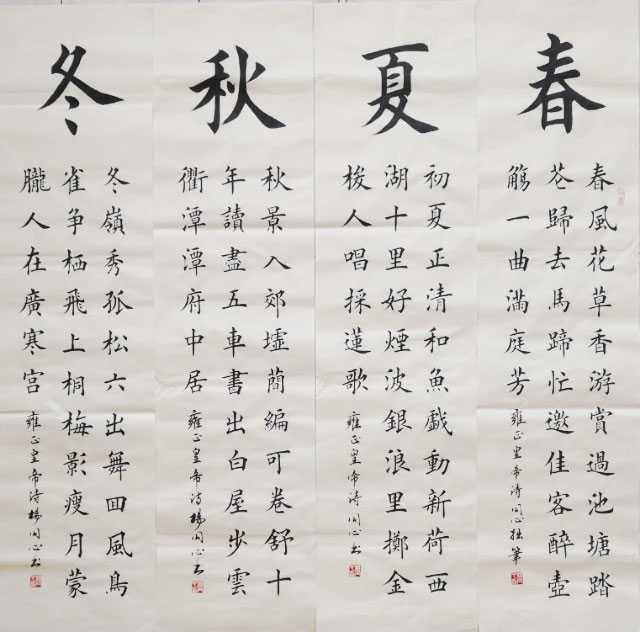 春
春風花草香游賞過池塘踏
花歸去馬蹄忙邀佳客醉壺
觴一曲滿庭芳
雍正皇帝詩同心拙筆
夏
初夏正清和魚戲動新荷西
湖十里好煙波銀浪里擲金
梭人唱採蓮歌
雍正皇帝詩同心书
秋
秋景入郊墟蕳編可卷舒十
年讀盡五車書出白屋步雲
衢潭潭府中居
雍正皇帝诗楊同心书
冬
冬嶺秀孤松六出舞囬風鳥
雀争栖飛上桐梅影瘦月蒙
朧人在廣寒宫
雍正皇帝诗楊同心书